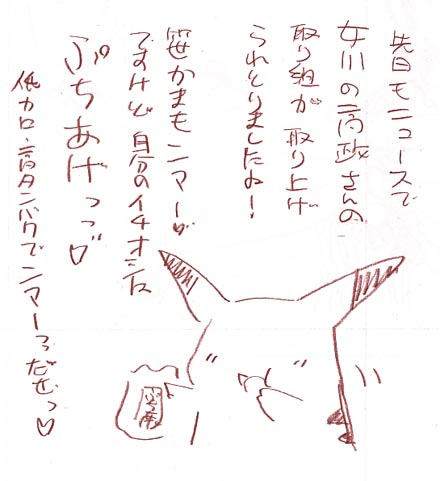 先日もニュースで
女川の高政さんの
取り組が取り上げ
られとりましたね!
笹かまもンマーが
ですけど自分のイチオシは
ぷちあげっっ♡
低カロ・高タンパクでンマーっだぜっ♡